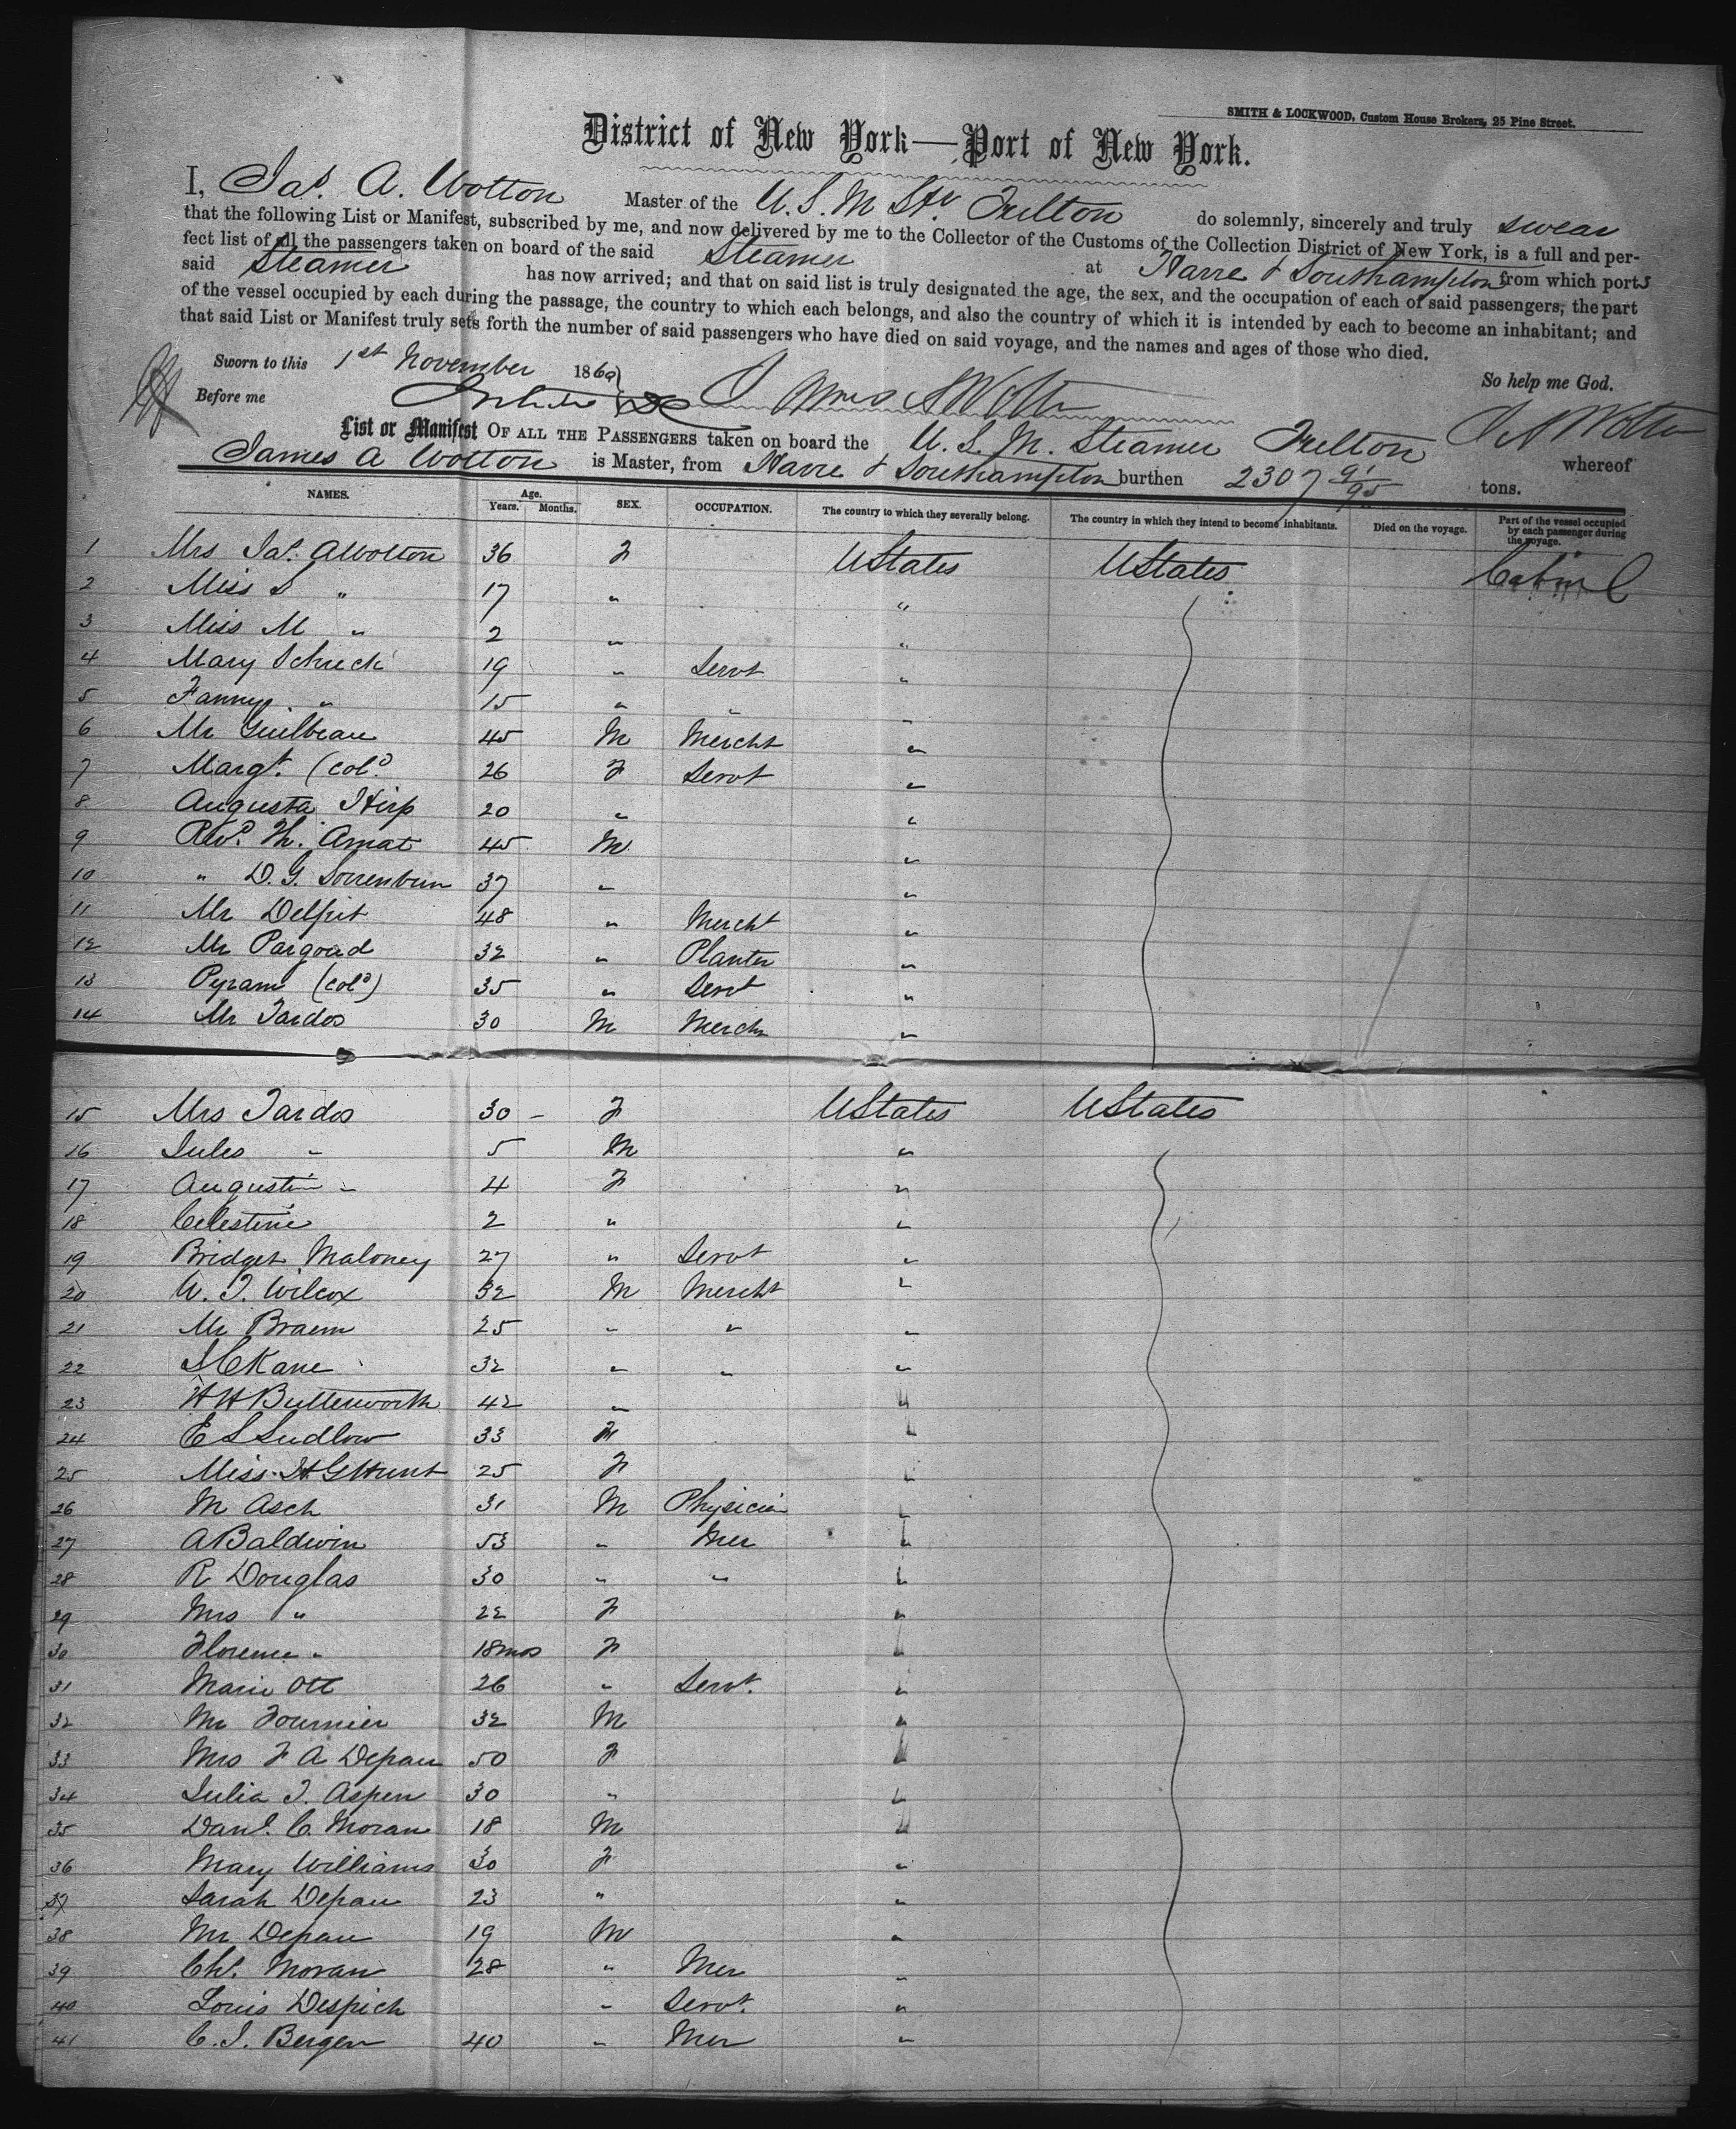 SMITH & LOCKWOOD, Custom House Brokers, 25 Pine Street.
District of New York—Port of New York.
I, Jas. A. Wotton Master of the U. S. M Str. Fulton do solemnly, sincerely and truly swear
that the following List or Manifest, subscribed by me, and now delivered by me to the Collector of the Customs of the Collection District of New York, is a full and per-
fect list of all the passengers taken on board of the said Steamer at Havre & Southampton from which ports
said Steamer has now arrived; and that on said list is truly designated the age, the sex, and the occupation of each of said passengers, the part
of the vessel occupied by each during the passage, the country to which each belongs, and also the country of which it is intended by each to become an inhabitant; and
that said List or Manifest truly sets forth the number of said passengers who have died on said voyage, and the names and ages of those who died.
Sworn to this 1st November 1860 So help me God.
Before me James A Wotton
List or Manifest OF ALL THE PASSENGERS taken on board the U. S. M. Steamer Fulton J A Wotton whereof
James A Wotton is Master, from Havre & Southampton burthen 2307 91/95 tons.
NAMES. Age. Years. Months. SEX. OCCUPATION. The country to which they severally belong. The country in which they intend to become inhabitants. Died on the voyage. Part of the vessel occupied by each passenger during the voyage.
1 Mrs Jas. A Wotton 36 F UStates UStates Cabin
2 Miss S " 17 " "
3 Miss M " 2 " "
4 Mary Schuck 19 " Servt "
5 Fanny " 15 " " "
6 Mr Guilbeau 45 M Mercht "
7 Margt. (cold. 26 F Servt "
8 Augusta Hirp 20 " "
9 Revd. Th. Amat 45 M "
10 " D. G. 37 " "
11 Mr Delpit 48 " Mercht "
12 Mr Pargoud 32 " Planter "
13 Pyram (cold) 35 " Servt "
14 Mr Tardos 30 M Mercht "
15 Mrs Tardos 30 - F UStates UStates
16 Jules " 5 M "
17 Augustin " 4 F "
18 Celestine 2 " "
19 Bridget Maloney 27 " Servt "
20 W. T. Wilcox 32 M Mercht "
21 Mr Braem 25 " " "
22 Kane 32 " " "
23 H H Butterworth 42 " "
24 E S Ludlow 33 M "
25 Miss H G Hunt 25 F "
26 M Asch 31 M Physician "
27 A Baldwin 53 " Mer "
28 R Douglas 30 " " "
29 Mrs " 22 F "
30 Florence " 18 mos F "
31 Marie Ott 26 " Servt. "
32 Mr Fournier 32 M "
33 Mrs F A Depau 50 F "
34 Julia T. Aspen 30 " "
35 Danl. C. Moran 18 M "
36 Mary Williams 30 F "
37 Sarah Depau 23 " "
38 Mr Depau 19 M "
39 Chs. Moran 28 " Mer "
40 Louis Despich " Servt. "
41 C. J. Bergen 40 " Mer "